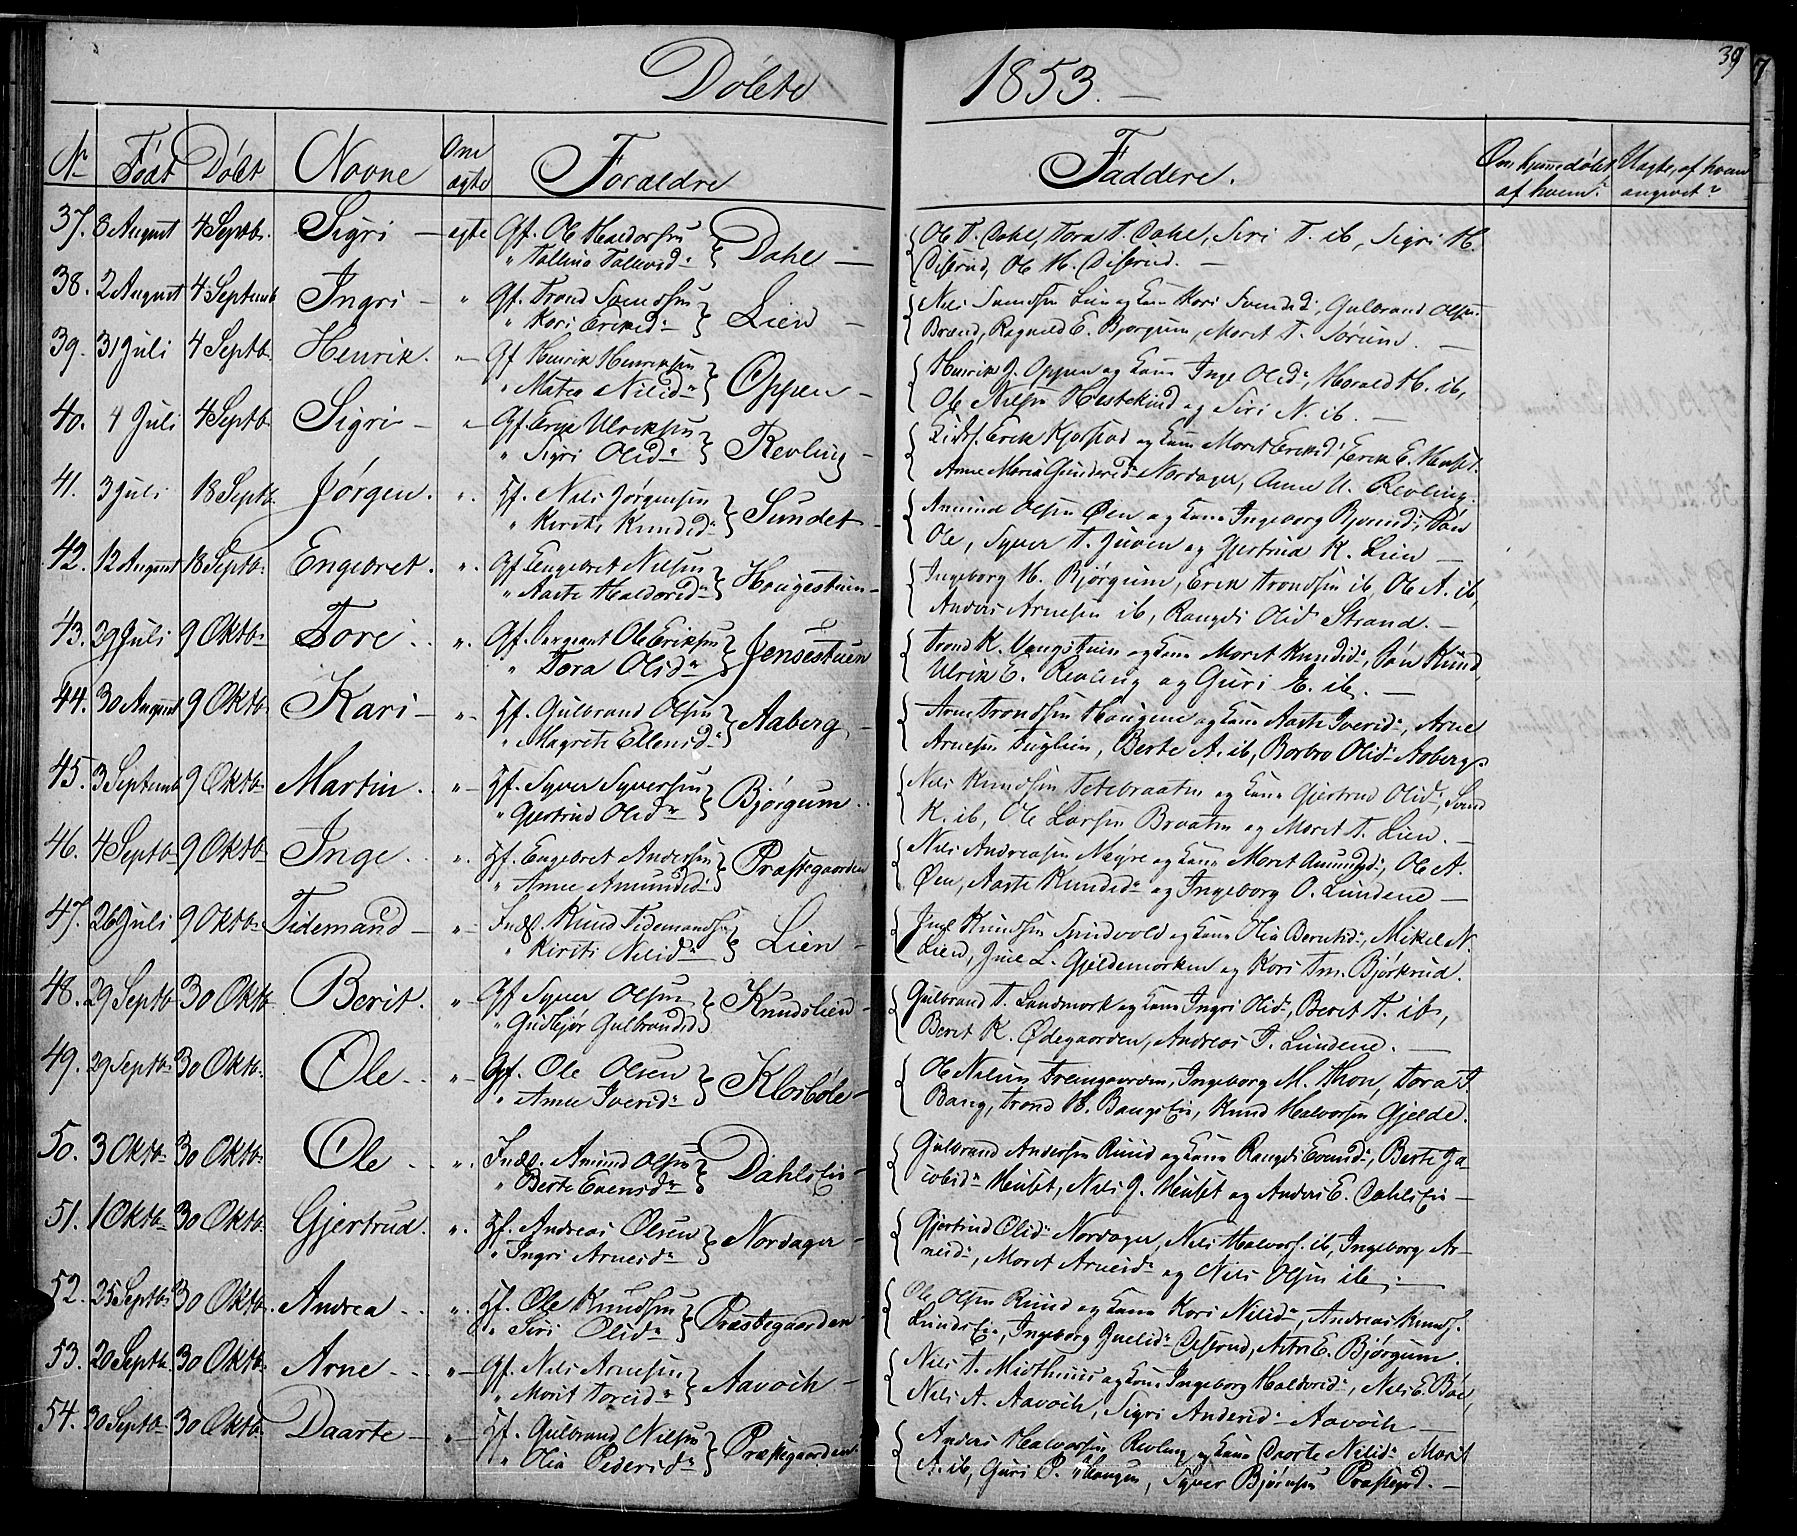 39
7
Döbte 1853. —
No Födt Döbt Navne Om ægte Foraldre Faddere. Om hjemmedöbt af hvem? Uægte, af hvem angivet?
37. 8 August 4 Septb. Sigri — egte Gf. Ole Haldorsen } Dahl — { Ole T. Dahl, Tora T. Dahl, Siri T. ib, Sigri H.
Diserud, Ole H. Diserud. —
38. 2 August 4 Septemb Ingri — " Gf. Trond Svendsen
" Kari Eriksd } Lien — { Nils Svendsen Lien og Kone Kari Svendsd, Gulbrand Olsen
Braend, Ragnild E. Bjorgum, Maret T. Sørum. —
39. 31 Juli 4 Septb. Henrik. " Gf Henrik Henriksen
" Matea Nilsd } Oppen — { Henrik J. Oppen og Kone Inge Olsd, Harald H. ib,
Ole Nilsen Hestekind og Siri N. ib. —
40. 4 Juli 4 Septb Sigri — " Gf. Erik Ulriksen
" Sigri Olsd } Revling — { Erik Kjolstad og Kone Maret Eriksd, Erik E.
Anne Maria Gundersd Nordager, Anne U. Revling.
41. 3 Juli 18 Septb Jörgen. " Hf. Nils Jörgensen
" Kirsti Knudsd } Sundet — { Amund Olsen Øen og Kone Ingeborg Bjornsd, Søn
Ole, Syver T. Juven og Gjertrud K. Lien —
42. 12 August 18 Septb. Engebret. " Gf Engebret Nilsen
" Aaste Haldorsd } Hougestuen — { Ingeborg H. Bjørgum, Erik Trondsen ib, Ole A. ib,
Anders Arnesen ib, Rangdi Olsd Strand. —
43. 29 Juli 9 Oktb. Tore. " Gf. Sergeant Ole Eriksen
" Tora Olsd } Jensestuen { Trond K. Vangstuen og Kone Maret Knudsd, Søn Knud,
Ulrik E. Revling og Guri E. ib. —
44. 30 August 9 Oktb. Kari — " Hf. Gulbrand Olsen
" Magrete Ellensd } Aaberg — { Arne Trondsen Haugene og Kone Aaste Iversd, Arne
Arnesen Tuglien, Berte A. ib, Barbro Olsd Aaberg.
45. 3 Septemb 9 Oktb. Martin. " Hf. Syver Syversen
" Gjertrud Olsd } Bjørgum. { Nils Knudsen Tetebraaten og Kone Gjertrud Olsd,
K. ib, Ole Larsen Braaten og Maret T. Lien. —
46. 4 Septb. 9 Oktb Inge. " Hf. Engebret Andersen
" Anne Amundsd } Præstegaarden { Nils Andreasen Møyre og Kone Maret Amundsd, Ole A.
Øen, Aaste Knudsd og Ingeborg O. Lundene —
47. 26 Juli 9 Oktb. Tidemand — " Inds. Knud Tidemandsen
" Kirsti Nilsd } Lien — { Juel Knudsen Sundvold og Kone Olia Berntsd, Mikel N.
Lien, Juel L. Gjeldemarken og Kari Tm. Bjørkrud.
48. 29 Septb 30 Oktb Berit. " Gf Syver Olsen
" Gudbjør Gulbrandsd } Knudslien — { Gulbrand T. Landmark og Kone Ingri Olsd, Beret T. ib,
Beret K. Ødegaarden, Andreas T. Lundene. —
49. 29 Septb 30 Oktb. Ole. " Gf. Ole Olsen
" Anne Iversd } Klosböle — { Ole Nilsen Fremgaarden, Ingeborg M. Thon, Tora T
Bang, Trond H. Bangs Eie, Knud Halvorsen Gjelde.
50. 3 Oktb 30 Oktb. Ole " Inds. Amund Olsen
" Berte Evensd } Dahls Eie — { Gulbrand Andersen Ruud og Kone Rangdi Evensd, Berte Ja-
cobsd Huset, Nils J. Huset og Anders E. Dahls Eie —
51. 1 Oktb. 30 Oktb. Gjertrud. " Hf. Andreas Olsen
" Ingri Arnesd } Nordager — { Gjertrud Olsd Nordager, Nils Halvors. ib, Ingeborg Ar-
nesd, Maret Arnesd og Nils Olsen ib. —
52. 25 Septb 30 Oktb. Andrea. " Hf. Ole Knudsen
" Siri Olsd } Præstegaarden { Ole Olsen Ruud og Kone Kari Nilsd, Andreas Knuds.
Lunds Eie, Ingeborg Juelsd Diserud, Astri E. Bjørgum.
53. 20 Septb. 30 Oktb. Arne " Gf. Nils Arnesen
" Marit Toresd } Aavoih — { Nils T. Midthuus og Kone Ingeborg Haldorsd, Nils E. Bøe,
Nils A. Aavoih, Sigri Andersd Aavoih —
54. 30 Septb. 30 Oktb. Daarte — " Hf. Gulbrand Nilsen
" Olia Pedersd } Præstegaarden { Anders Halvorsen Revling og Kone Daarte Nilsd, Marit
A. ib, Guri P. Haugen, Syver Bjørnsen Præstegrd. —